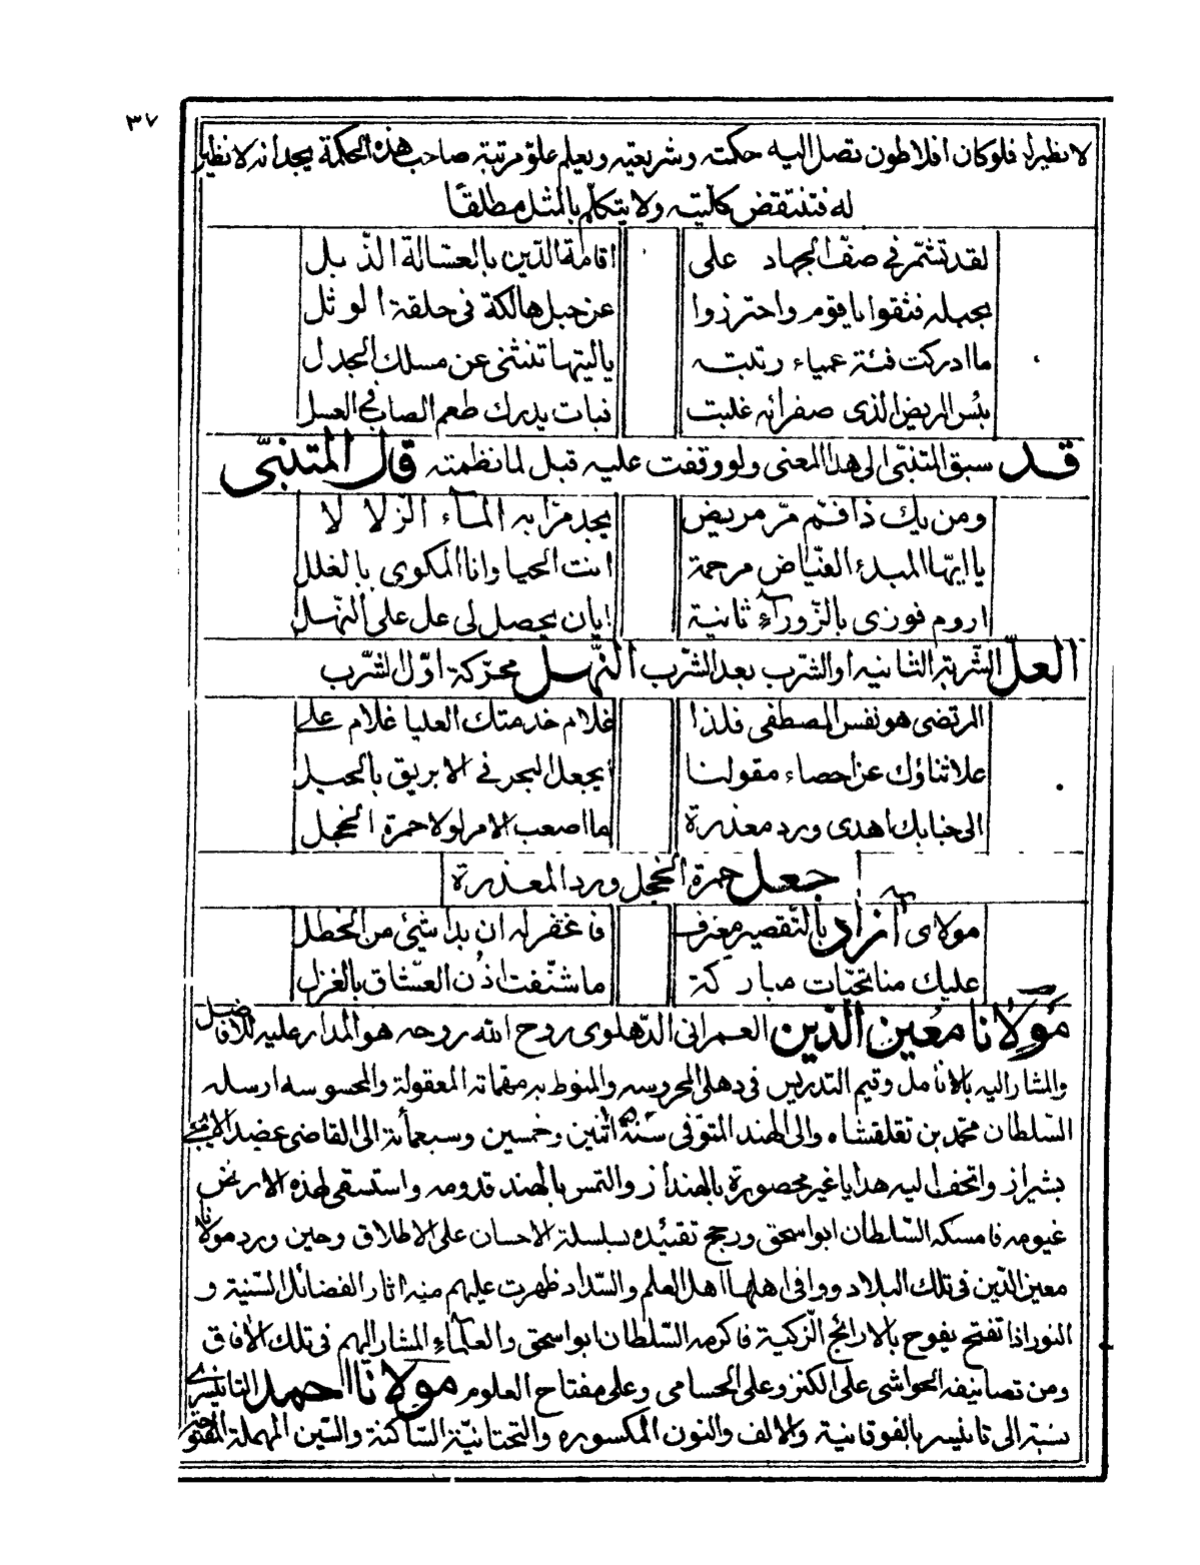 ٣٧
لا نظير له فلوكان افلاطون تصل اليه حكمته وشريعته ويعلم علو مرتبة صاحب هذه الحكمة يجد انه لا نظير
له فتنتقض كليته ولا يتكلم بالمثل مطلقًا
لقد تشمر في صف الجهاد على اقامة الدين بالعسّالة الذّبل
بحبله فثقوا يا قوم واحترزوا عن حبل هالكة فى حلقة الوثل
ما ادركت فئة عمياء رتبته ياليتها تنثنى عن مسلك الجدل
بئس المريض الذى صفرائه غلبت نبات يدرك طعم الصاب فى العسل
قد سبق المتنبّى الى هذا المعنى ولو وقفت عليه قبل لما نظمته قال المتنبّى
ومن يك ذا فم مرّ مريض يجد مرّا به المآء الزّلالا
يا ايها المبدء الفيّاض مرحمة انت الحيا وانا المكوى بالغلل
اروم فوزى بالزّورآء ثانية ايان يحصل لى عل على النّهل
العلّ الشّربة الثانيه او الشرب بعد الشرب النّهل محرّكة اوّل الشرب
المرتضى هو نفس المصطفى فلذا غلام خدمتك العليا غلام على
علا ثناؤك عن احصاء مقولنا ايجعل البحر فى الابريق بالحيل
الى جنابك اهدى ورد معذرة ما اصعب الامر لولا حمرة الخجل
جعل حمرة الخجل ورد المعذرة
مولاى آزاد بالتّقصير معترف فاغفر له ان بدا شيئ من الخطل
عليك منا تحيّات مباركة ما شنّفت اذن العشّاق بالغزل
مولانا معين الدّين العمرانى الدّهلوى روح الله روحه هو المدار عليه للافاضل
والمشار اليه بالانامل وقيم التدريس فى دهلى المحروسه والمنوط به مهمات المعقولة والمحسوسه ارسله
السّلطان محمد بن تغلقشاه والى الهند المتوّفى سنة اثنين وخمسين وسبعمأئة الى القاضى عضد الايجى
بشيراز واتحف اليه هدايا غير محصورة بالهنداز والتمس بالهند قدومه واستسقى لهذه الارض
غيومه فامسكه السّلطان ابواسحق ورجح تقئيده بسلسلة الاحسان على الاطلاق وحين ورد مولانا
معين الدّين فى تلك البلاد ووافى اهلها اهل العلم والسّداد ظهرت عليهم منه اثار الفضائل السّنية و
النور اذا تفتح يفوح بالارائج الزّكية فاكرمه السّلطان ابواسحق والعلمآء المشار اليهم فى تلك الآفاق
ومن تصانيفه الحواشى على الكنز وعلى الحسامى وعلى مفتاح العلوم مولانا احمد التانيسرى
نسبة الى تانيسر بالفوقانية والالف والنون المكسوره والتحتانيّة السّاكنة والسّين المهملة المفتوحة